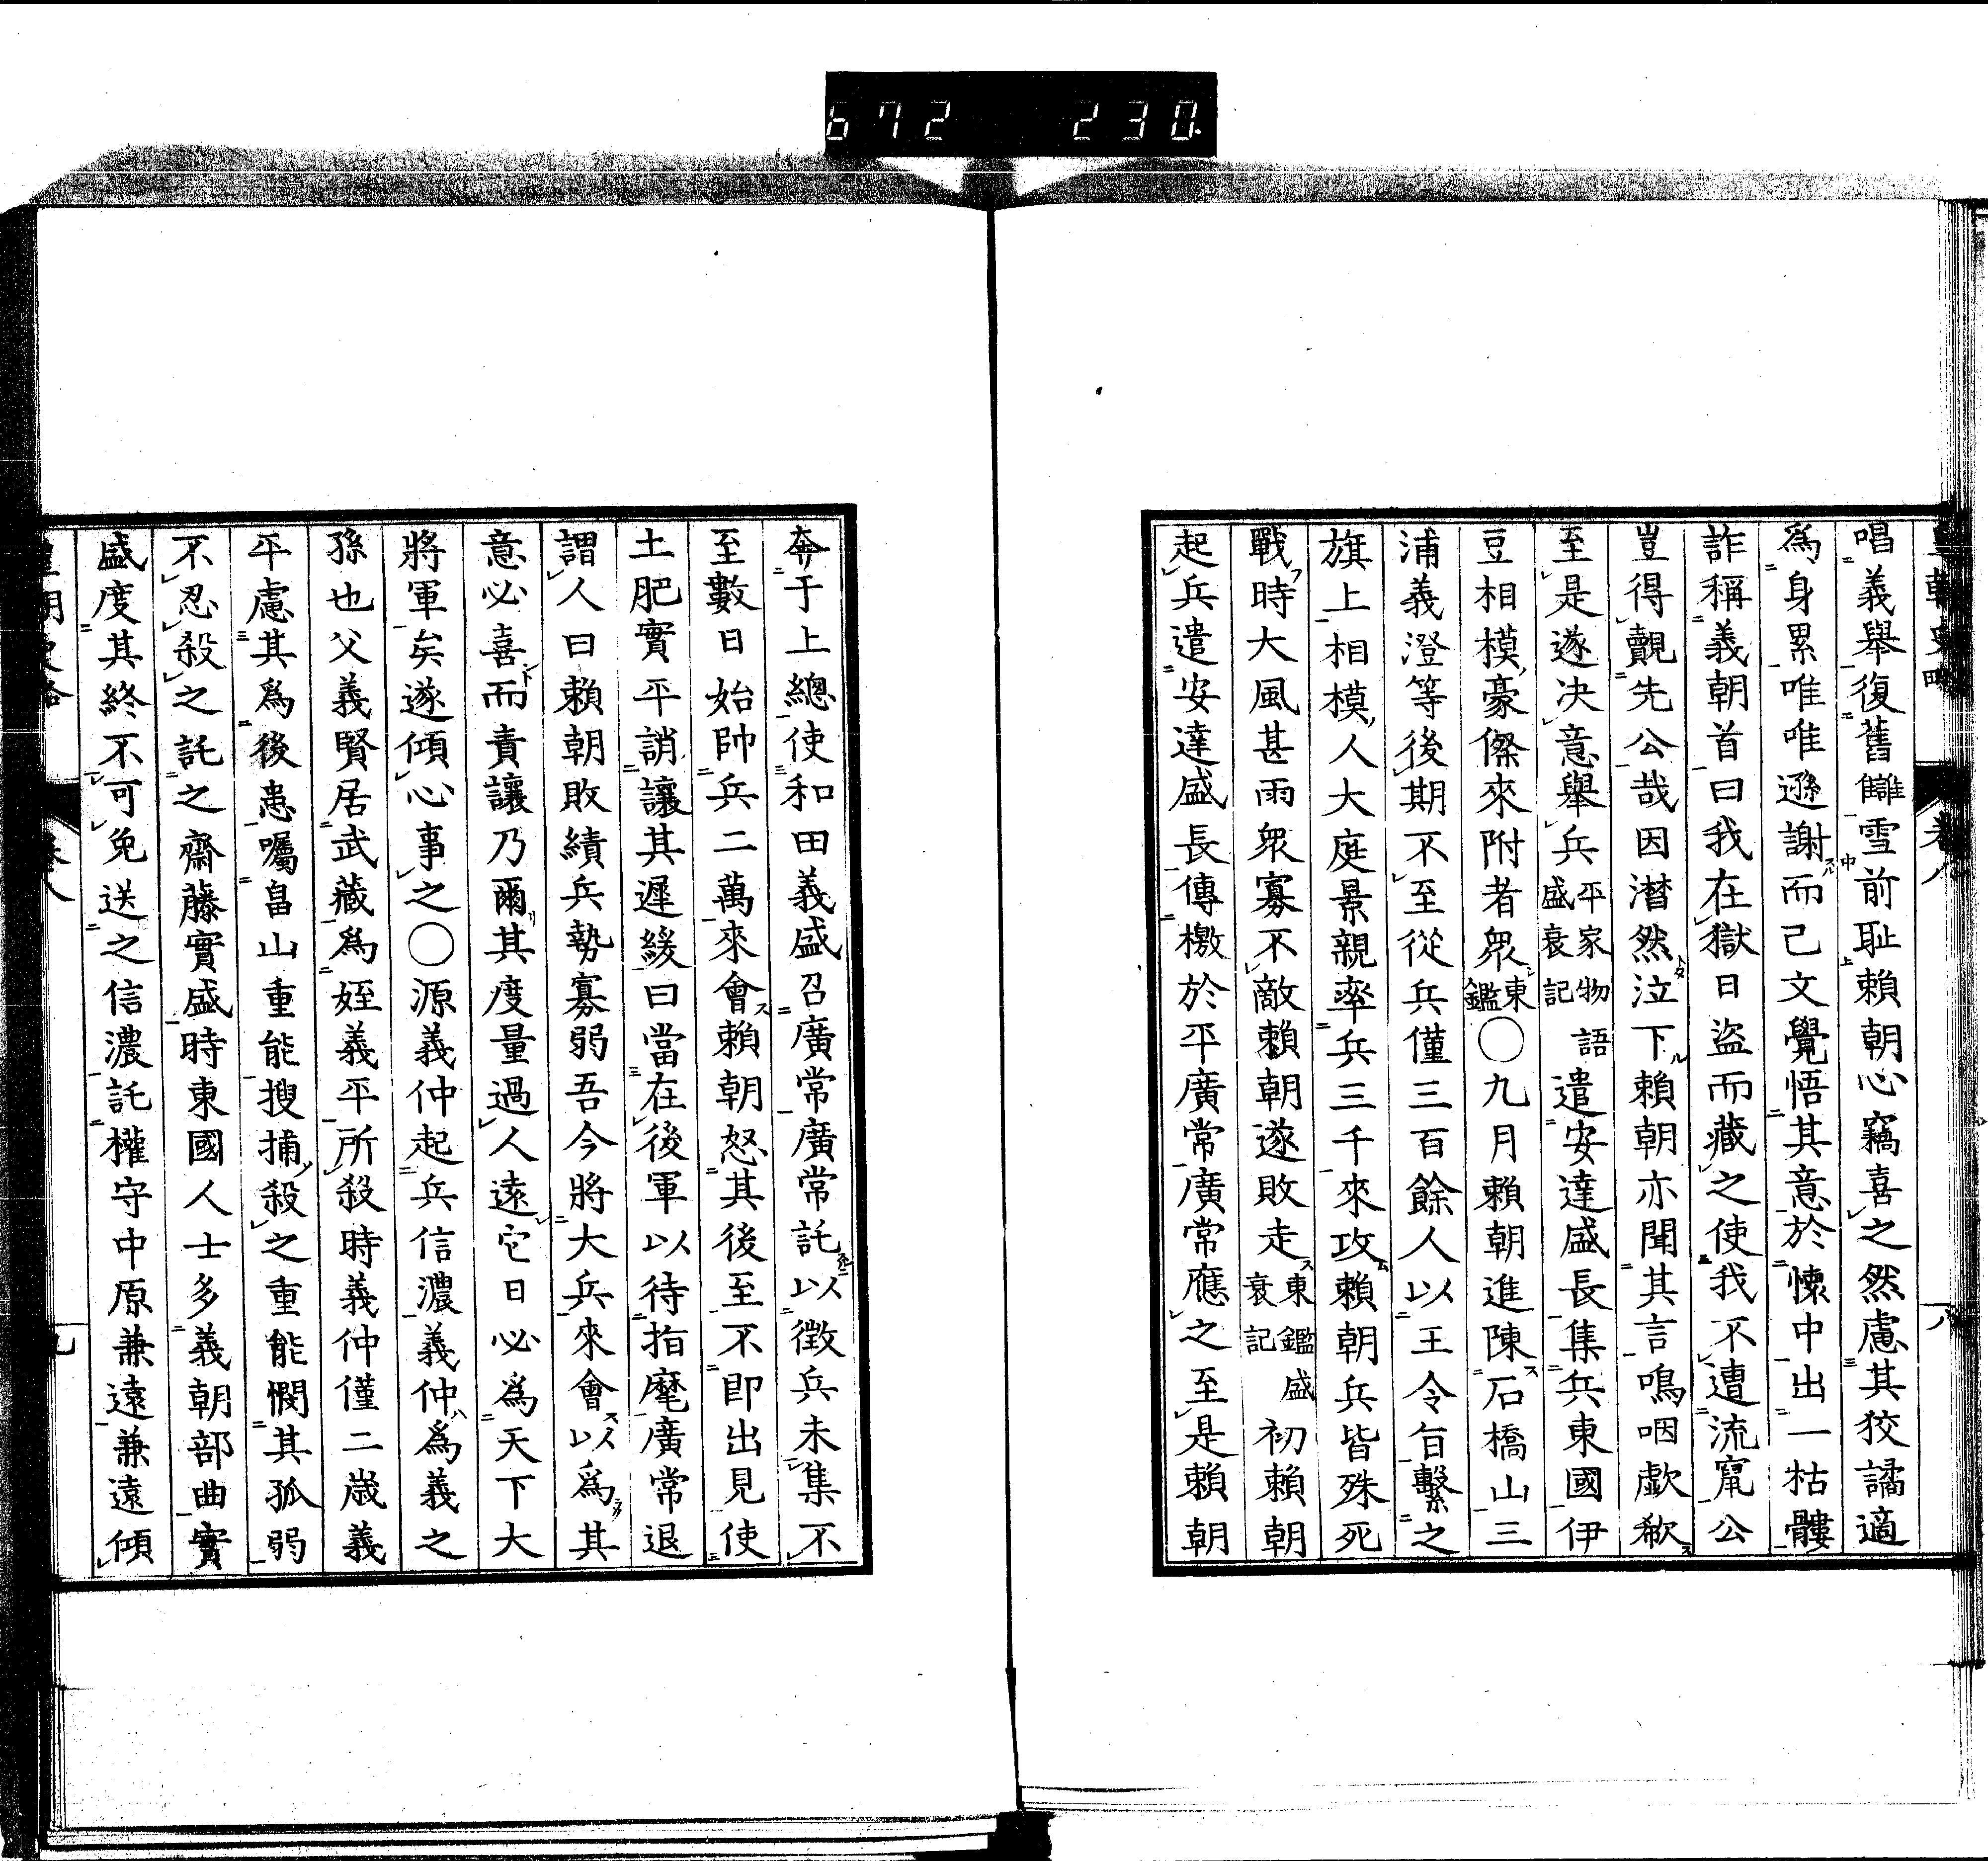 672 230
皇朝史略 卷八 八
唱義舉復舊讎雪前耻賴朝心竊喜之然慮其狡譎適
爲身累唯唯遜謝而已文覺悟其意於懷中出一枯髏
詐稱義朝首曰我在獄日盜而藏之使我不遭流竄公
豈得覿先公哉因潸然泣下賴朝亦聞其言鳴咽歔欷
至是遂决意舉兵平家物語盛衰記遣安達盛長集兵東國伊
豆相模豪傑來附者衆東鑑〇九月賴朝進陳石橋山三
浦義澄等後期不至從兵僅三百餘人以王令旨繫之
旗上相模人大庭景親率兵三千來攻賴朝兵皆殊死
戰時大風甚雨衆寡不敵賴朝遂敗走東鑑盛衰記初賴朝
起兵遣安達盛長傳檄於平廣常廣常應之至是賴朝
奔于上總使和田義盛召廣常廣常託以徵兵未集不
至數日始帥兵二萬來會賴朝怒其後至不即出見使
土肥實平誚讓其遲緩曰當在後軍以待指麾廣常退
謂人曰賴朝敗績兵勢寡弱吾今將大兵來會以爲其
意必喜而責讓乃爾其度量過人遠它日必爲天下大
將軍矣遂傾心事之〇源義仲起兵信濃義仲爲義之
孫也父義賢居武藏爲姪義平所殺時義仲僅二歲義
平慮其爲後患囑畠山重能搜捕殺之重能憫其孤弱
不忍殺之託之齋藤實盛時東國人士多義朝部曲實
盛度其終不可免送之信濃託權守中原兼遠兼遠傾
皇朝史略 卷八 九